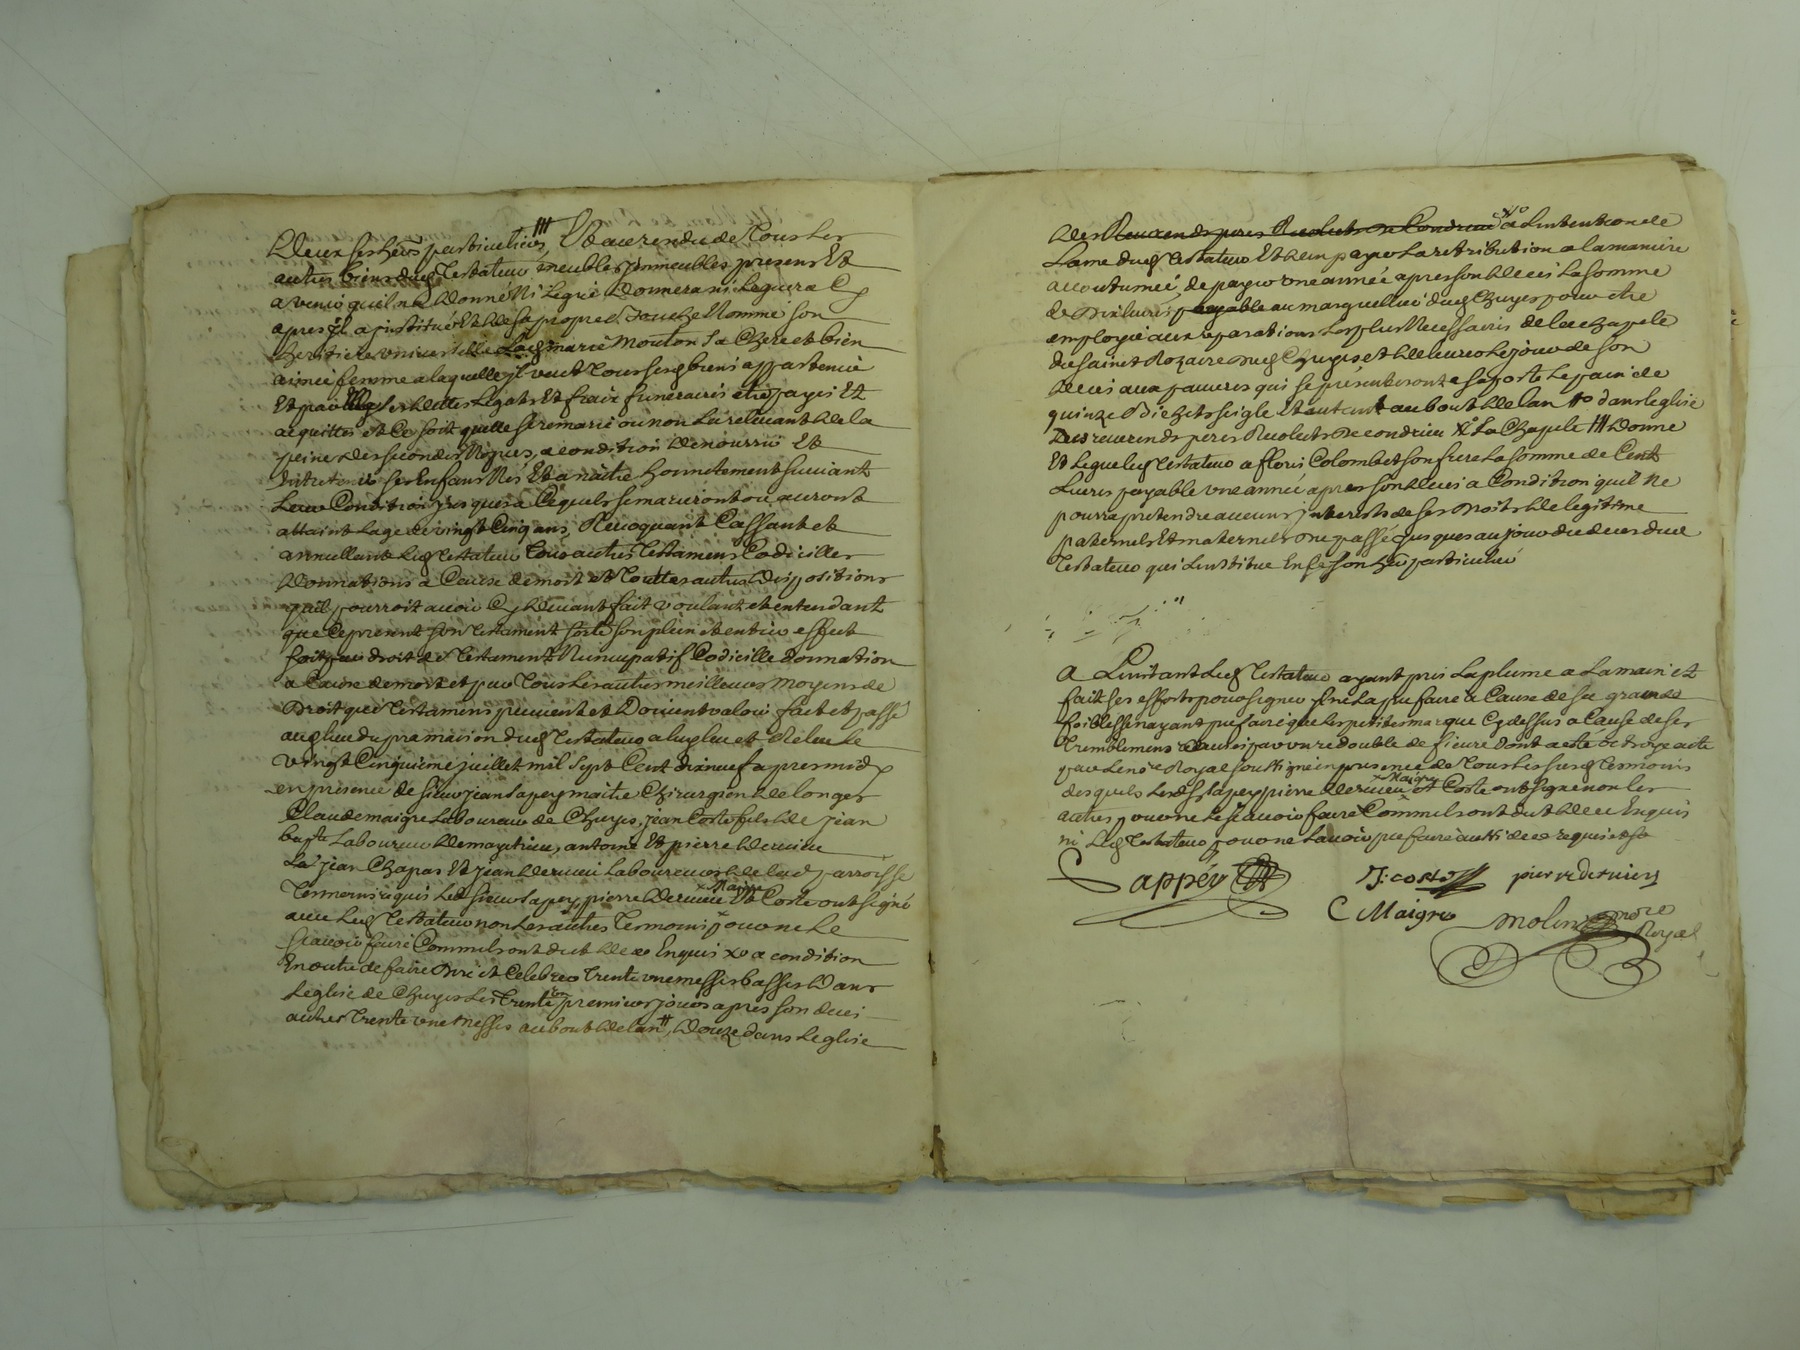 deux ses hers particulieres ₶ Et au rendu de tous les
autres biens dud testateur meubles jmmeubles presens Et
a venir quil na donné Ni legué donnera ni leguera Cy
apres jl a justitué Et de sa propre bouche Nommé son
heritiere universelle lad marie mouton sa Chere et bien
aimée femme a laquelle jl veut tous sesd biens appartenir
Et par Elle ses dettes legats Et fraix funeraires etre payes Et
acquittes et Ce soit quelle se remarie ou non la relevant de la
peine des secondes Nopces, a condition de nourrir Et
entretenir ses Enfans Nés Et a naitre honnetement suivant
leur Condition jusques a Ce quils se marieront ou auront
attaint lage de vingt Cinq ans, Revoquant Cassant et
annullant led testateur tous autres testamens Codicilles
donnations a Cause de mort et touttes autres dispositions
quil pourroit avoir Cy devant fait voulant et entendant
que Ce present son testament sorte son plein et entier effect
soit par droit de testament Nuncupatif Codicille donnation
a Cause de mort et par tous les autres meilleures moyens de
droit que testamens peuvent et doivent valoir fait et passé
aud lieu du pra maison dud testateur a lupleur et Releu le
vingt Cinquieme juillet mil sept Cent dixneuf apres midy
en presence de sieur jean sapey maitre Chirurgien de longes
Claude maigre laboureur de Chuyes, jean Coste fils de jean
bapte laboureur de mayatrieu, antoine Et pierre dervieu
la jean Chapas Et jean dervieu laboureurs de lad parroisse
temoins requis led sieur sapey, pierre dervieu x Maigre Et Coste ont signé
avec led testateur non les autres temoins pour ne le
scavoir faire Comm ils ont dit de ce Enquis xv a condition
En outre de faire dire et Celebrer trente une messes basses dans
leglise de Chuyes les trente une premiers jours apres son deces
autres trente une messes au bout de lan ₶, douze dans leglise
des Reverends peres Recolects de Condrieu a Lintention de
Lame dud testateur Et den payer la retribution a la maniere
accoutumée, de payer une année apres son deces la somme
de dix livres payable au marguellier dud Chuyes pour etre
employée aux reparations les plus Necessaires de la chapele
du saint Rozaire dud Chuyes et delivrer le jour de son
deces aux pauvres qui se presenteront a sa porte le pain de
quinze bichets seigle Et autant au bout de lan ₶ dans leglise
des reverends peres Recolects de condrieu X La Chapele ₶ donne
Et legue led testateur a floris Colombet son frere la somme de Cent
livres payable une année apres son deces a Condition quil Ne
pourra pretendre aucuns jnterests de ses droits de legitime
paternels Et maternels du passé jusques au jour du deces dud
testateur qui Linstitue En Ce son her particulier
A Linstant led testateur ayant pris la plume a la main et
fait ses efforts pour signer il ne la pu faire a Cause de sa grande
foiblesse nayant pu faire que les petites marque Cy dessus a Cause de ses
tremblemens Causés par un redouble de fievre dont a eté octroyé acte
par le nore Royal soussigné en presence de tous les susd temoins
desquels lesd Sr sapey pierre dervieu x Maigre et Coste ont signé non les
autres pour ne le scavoir faire Comm ils ont dit de ce Enquis
ni led testateur pour ne lavoir pu faire aussi de ce requis et so
Sappéy
J: coste
pierre dervieu
C Maigre
molin nore
Royal